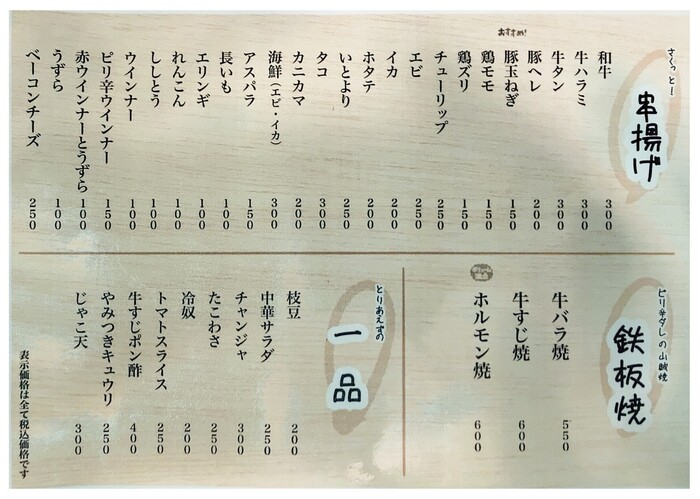 さくっとー
串揚げ
和牛 300
牛ハラミ 300
牛タン 300
豚ヘレ 200
おすすめ!
豚玉ねぎ 150
鶏モモ 150
鶏ズリ 150
チューリップ 250
エビ 250
イカ 200
ホタテ 200
いとより 250
タコ 300
カニカマ 200
海鮮(エビ・イカ) 300
アスパラ 150
長いも 100
エリンギ 100
れんこん 100
ししとう 100
ウインナー 100
ピリ辛ウインナー 150
赤ウインナーとうずら 100
うずら 100
ベーコンチーズ 250
ピリ辛ダレの山賊焼
鉄板焼
牛バラ焼 550
牛すじ焼 600
ホルモン焼 600
とりあえずの
一品
枝豆 200
中華サラダ 250
チャンジャ 300
たこわさ 250
冷奴 200
トマトスライス 250
牛すじポン酢 400
やみつきキュウリ 250
じゃこ天 300
表示価格は全て税込価格です